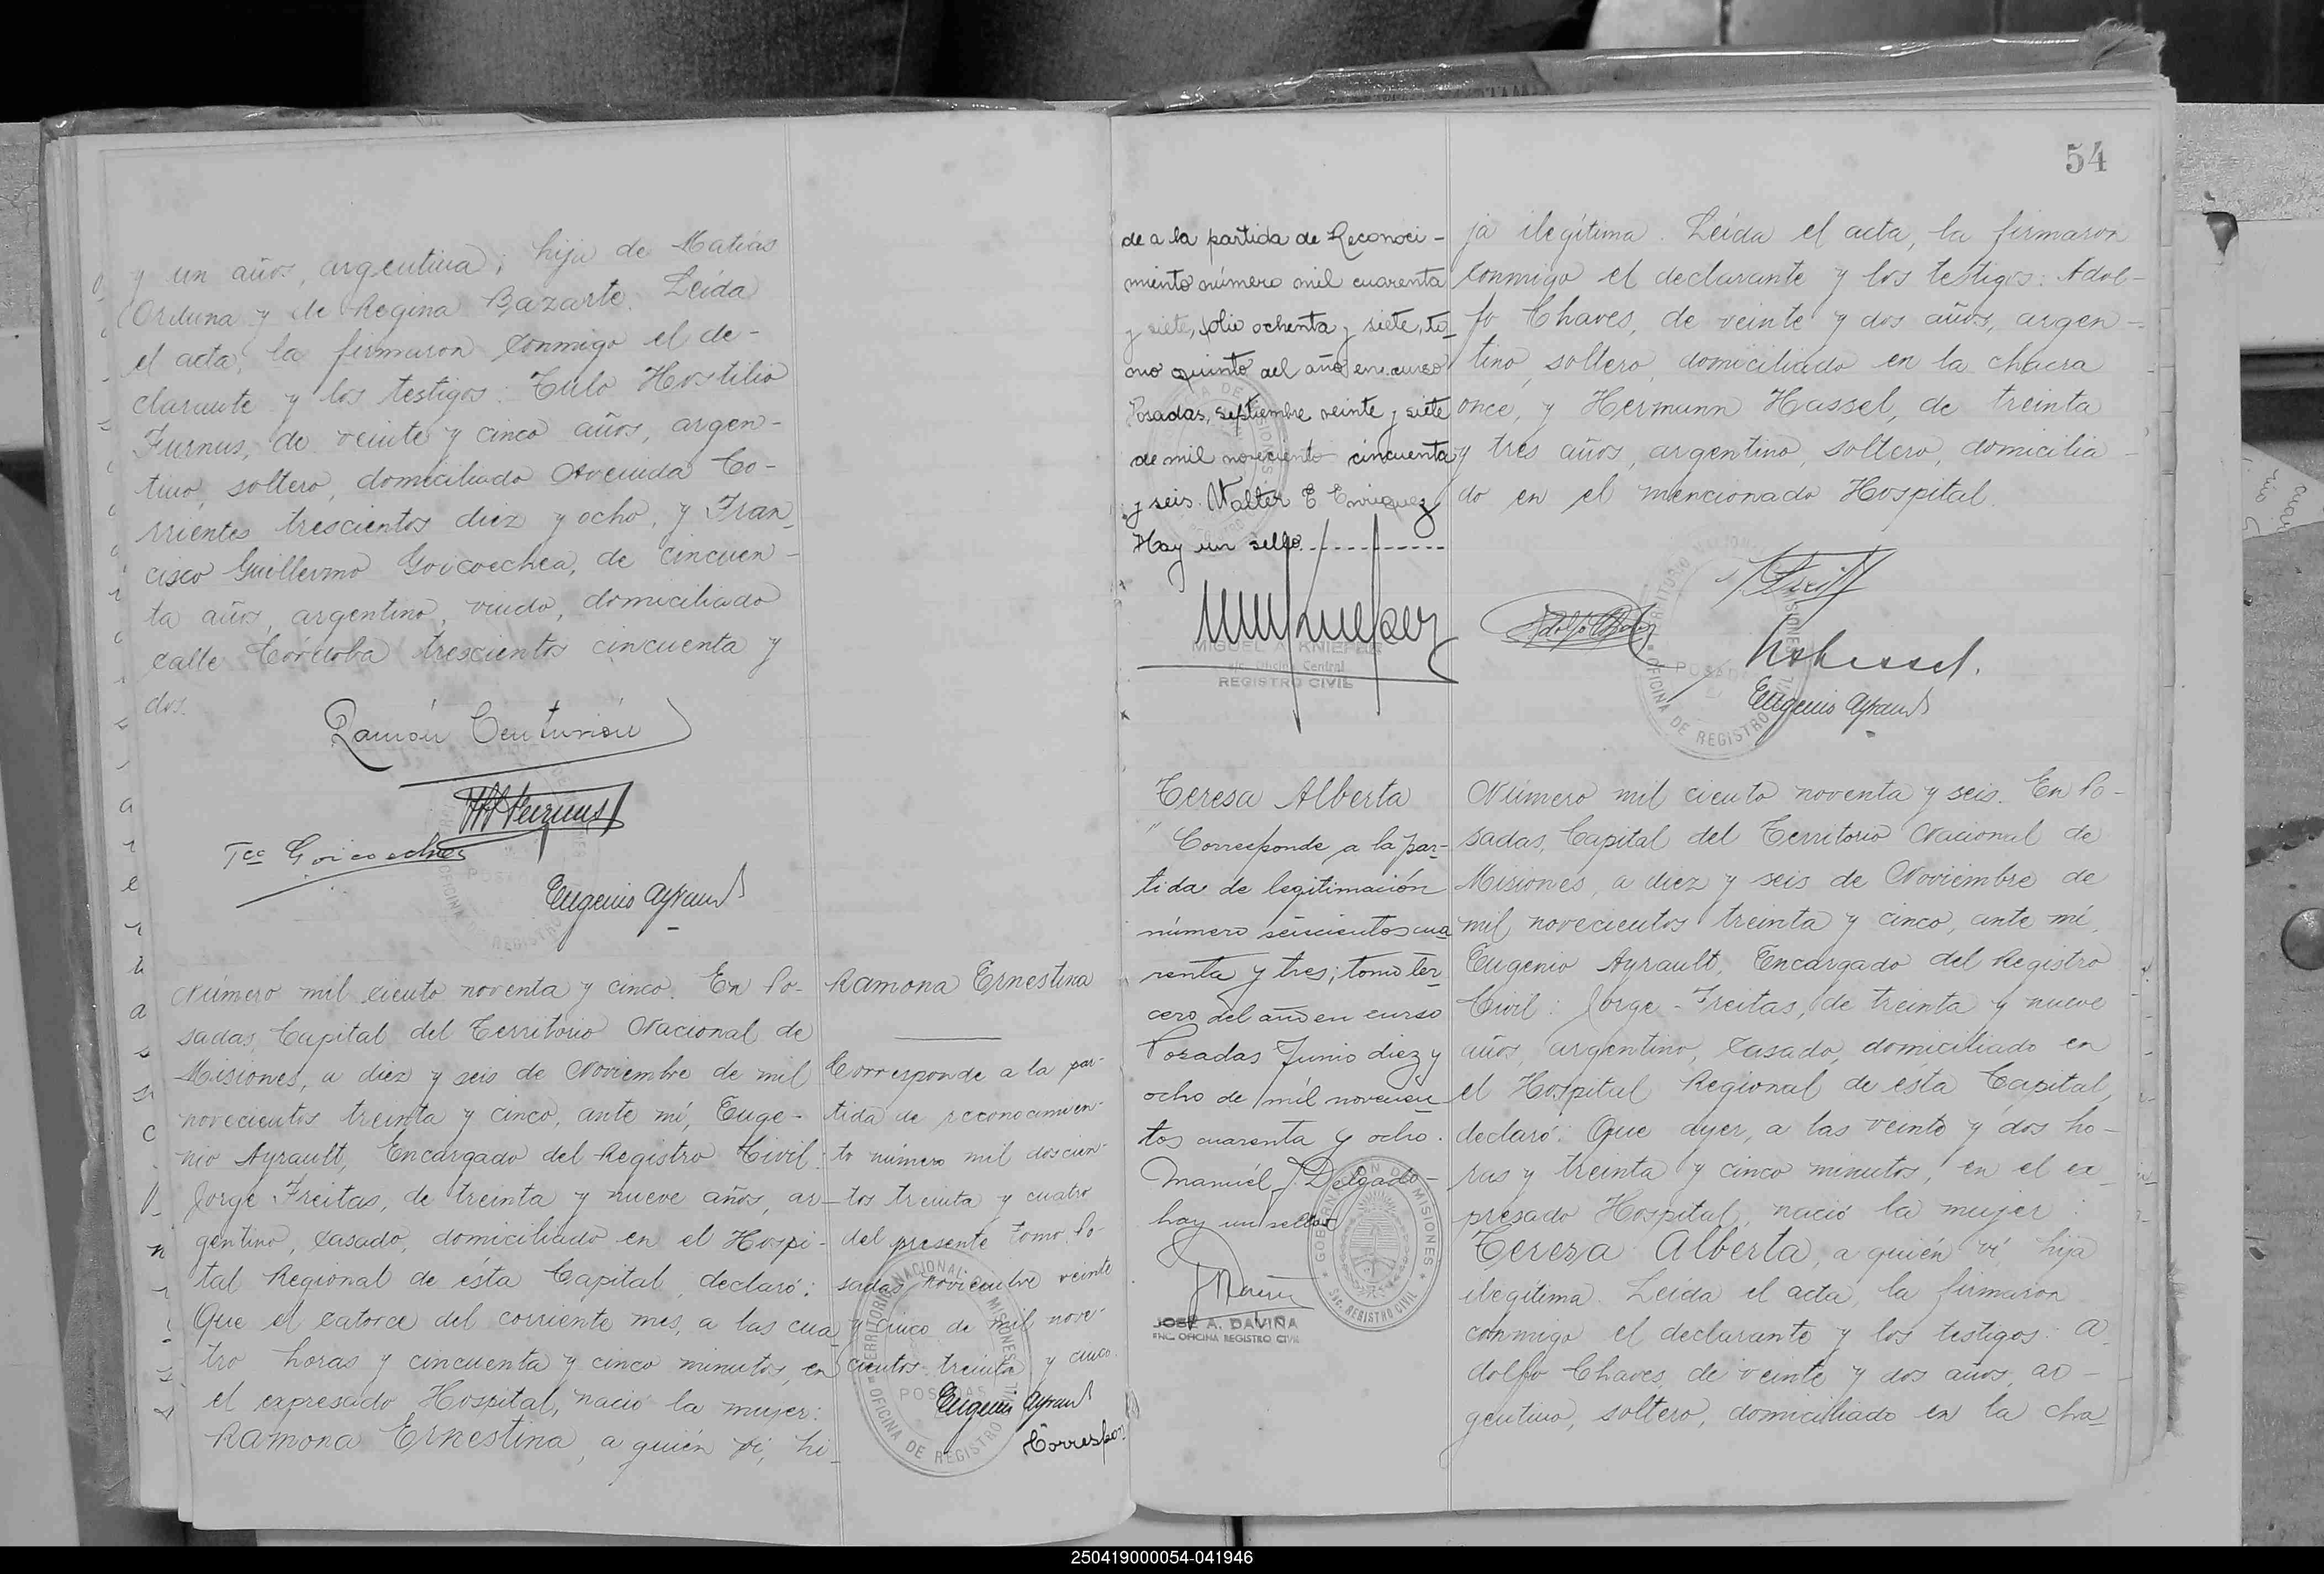 y un años, argentina; hija de Matías
Orduna y de Regina Bazarte. Leída
el acta, la firmaron conmigo el de-
clarante y los testigos: Tulo Hostilio
Furnus, de veinte y cinco años, argen-
tino, soltero, domiciliado Avenida Co-
rrientes trescientos diez y ocho, y Fran-
cisco Guillermo Goicoechea, de cincuen-
ta años, argentino, viudo, domiciliado
calle Córdoba trescientos cincuenta y
dos.
Ramón Centurión
Fco Goicoechea
Eugenio Ayrault
Número mil ciento noventa y cinco. En Po-
sadas, Capital del Territorio Nacional de
Misiones, a diez y seis de Noviembre de mil
novecientos treinta y cinco, ante mí, Euge-
nio Ayrault, Encargado del Registro Civil:
Jorge Freitas, de treinta y nueve años, ar-
gentino, casado, domiciliado en el Hospi-
tal Regional de ésta Capital, declaró:
Que el catorce del corriente mes, a las cua-
tro horas y cincuenta y cinco minutos, en
el expresado Hospital, nació la mujer:
Ramona Ernestina, a quién vi, hi-
Ramona Ernestina
Corresponde a la par-
tida de reconocimien-
to número mil doscien-
tos treinta y cuatro
del presente tomo. Po-
sadas, Noviembre veinte
y cinco de mil nove-
cientos treinta y cinco.
Eugenio Ayrault
Correspon
TERRITORIO NACIONAL MISIONES
POSADAS
OFICINA DE REGISTRO CIVIL
54
de a la partida de Reconoci-
miento número mil cuarenta
y siete, folio ochenta y siete, to-
mo quinto del año en curso
Posadas, septiembre veinte y siete
de mil noveciento cincuenta
y seis. Walter E Enriquez
Hay un sello
MIGUEL A. KNIEPER
Oficina Central
REGISTRO CIVIL
ja ilegítima. Leída el acta, la firmaron
conmigo el declarante y los testigos: Adol-
fo Chaves, de veinte y dos años, argen-
tino, soltero, domiciliado en la chacra
once, y Hermann Hassel, de treinta
y tres años, argentino, soltero, domicilia-
do en el mencionado Hospital.
Eugenio Ayrault
OFICINA DE REGISTRO CIVIL
Teresa Alberta
" Corresponde a la par-
tida de legitimación
número seiscientos cua
renta y tres; tomo ter
cero del año en curso
Posadas Junio diez y
ocho de mil novecien
tos cuarenta y ocho.
Manuél J. Delgado-
hay un sello
JOSE A. DAVIÑA
ENC. OFICINA REGISTRO CIVIL
GOBERNACION DE MISIONES
Sec. REGISTRO CIVIL
Número mil ciento noventa y seis. En Po-
sadas, Capital del Territorio Nacional de
Misiones, a diez y seis de Noviembre de
mil novecientos treinta y cinco, ante mí,
Eugenio Ayrault, Encargado del Registro
Civil: Jorge Freitas, de treinta y nueve
años, argentino, casado, domiciliado en
el Hospital Regional de ésta Capital,
declaró: Que ayer, a las veinte y dos ho-
ras y treinta y cinco minutos, en el ex-
presado Hospital, nació la mujer:
Teresa Alberta, a quién vi, hija
ilegítima. Leída el acta, la firmaron
conmigo el declarante y los testigos: A-
dolfo Chaves, de veinte y dos años, ar-
gentino, soltero, domiciliado en la cha-
250419000054-041946